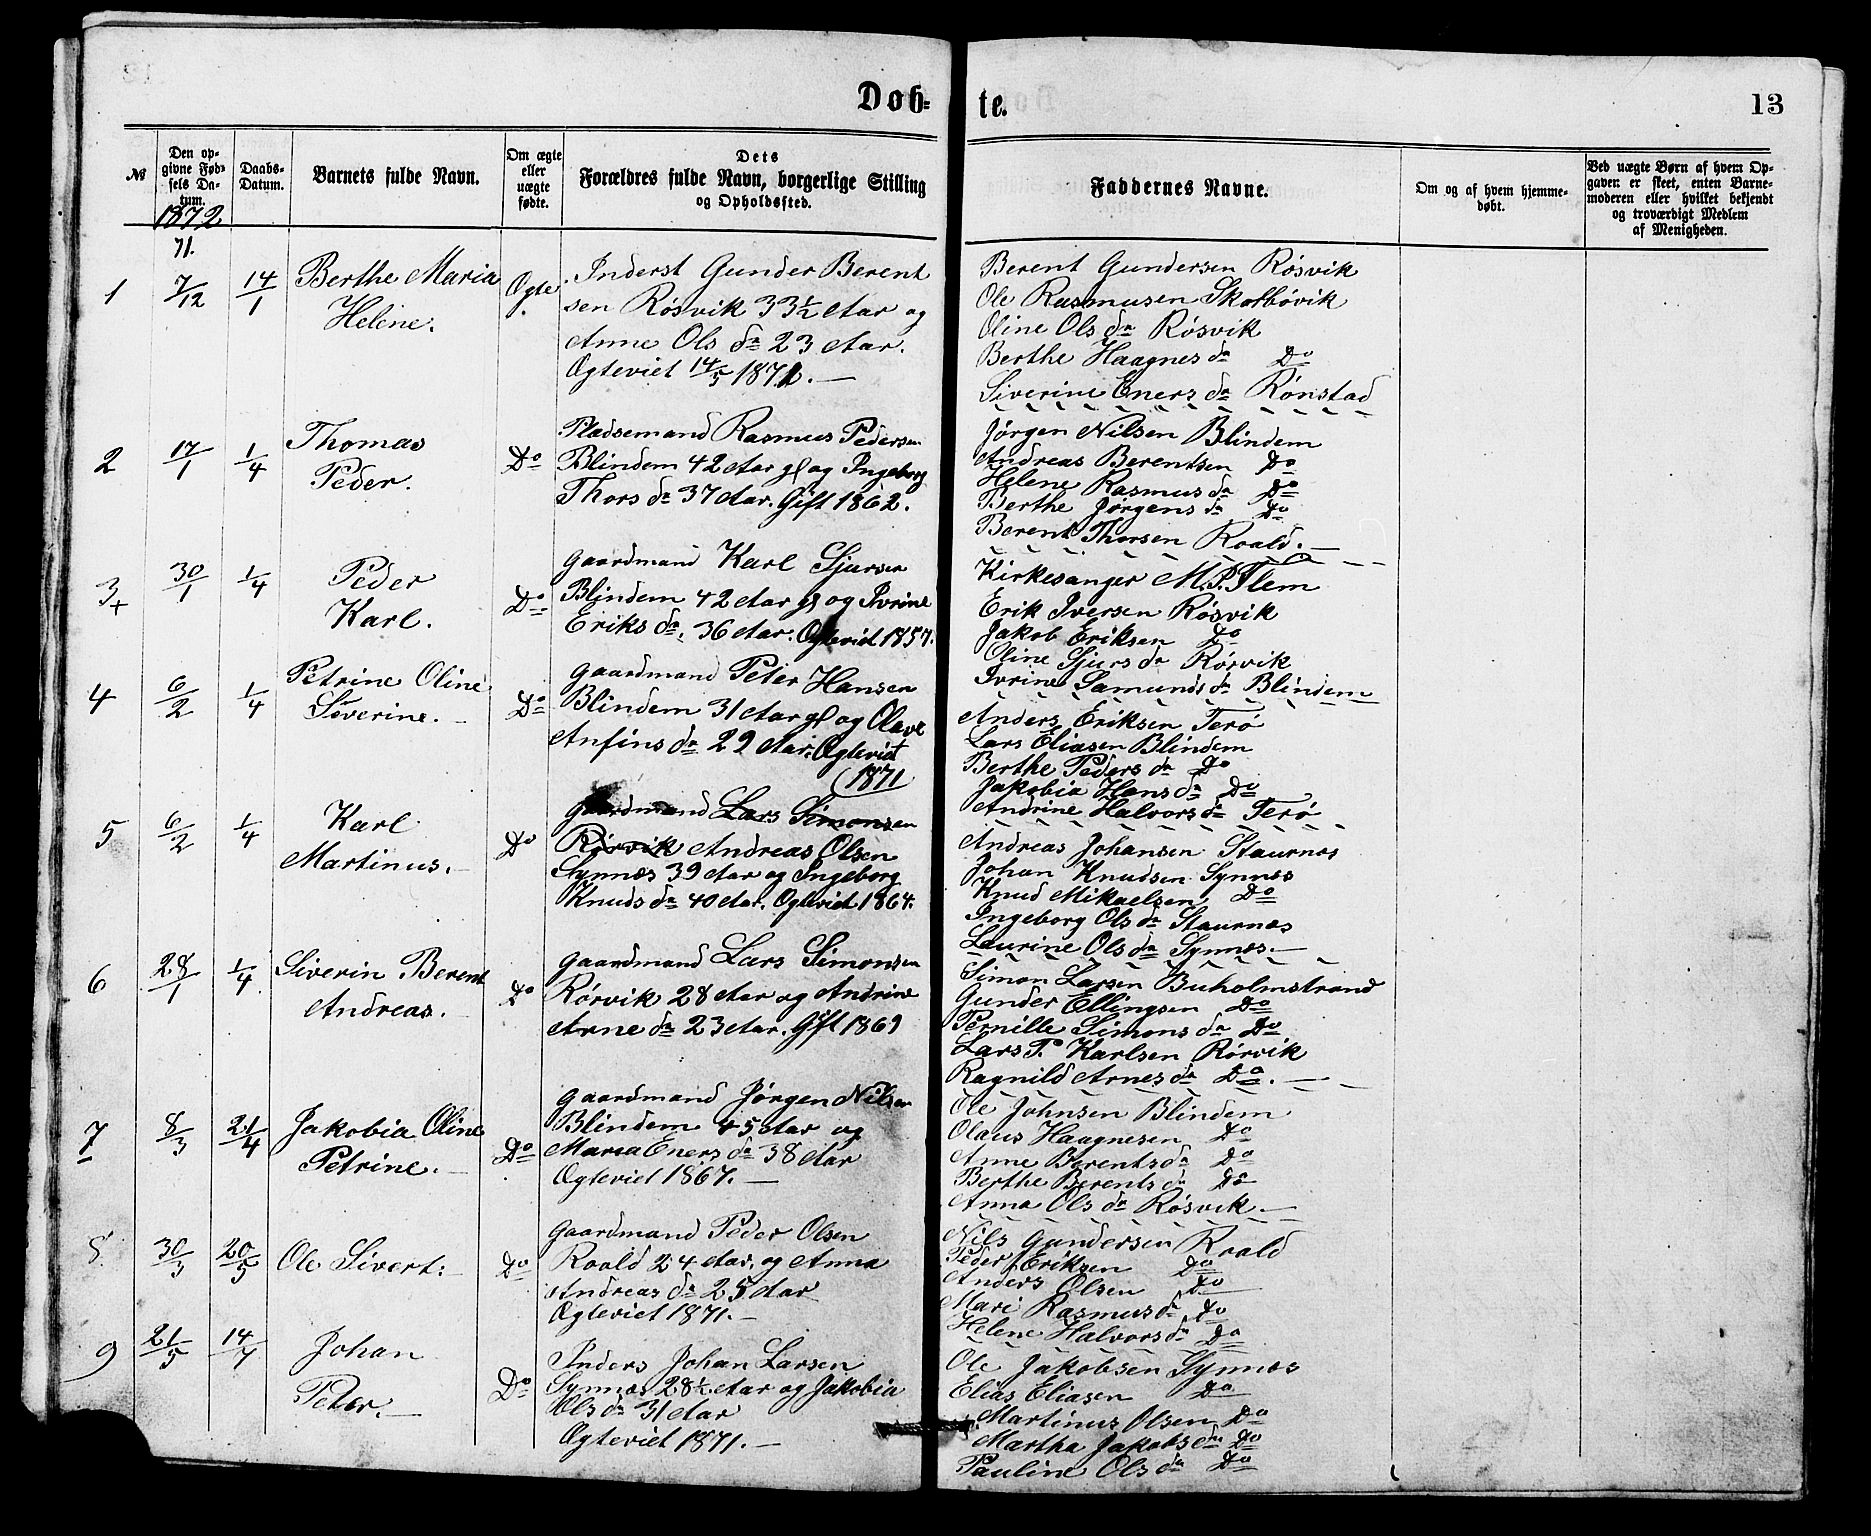 Døb-
te.
13
№
Den op-
givne Fød-
sels Da-
tum.
Daabs-
Datum.
Barnets fulde Navn.
Om ægte
eller
uægte
fødte.
Dets
Forældres fulde Navn, borgerlige Stilling
og Opholdssted.
Faddernes Navne.
Om og af hvem hjemme-
døbt.
Ved uægte Børn af hvem Op-
gaven er skeet, enten Barne-
moderen eller hvilket bekjendt
og troværdigt Medlem
af Menigheden.
1872
71.
1
7/12
14/1
Berthe Maria
Helene.
Ogte.
Inderst Gunder Berent
sen Rösvik 33½ Aar og
Anne Ols dr 23 Aar.
Ogteviet 14/5 1871. —
Berent Gundersen Rösvik
Ole Rasmusen
Oline Ols dr Rösvik
Berthe Haagnes dr Do
Siverine Eners dr Rönstad
2
17/1
1/4
Thomas
Peder.
Do
Pladsemand Rasmus Pedersen
Blindem 42 Aar gl og Ingeborg
Thors dr 37 Aar. Gift 1862.
Jörgen Nilsen Blindem
Andreas Berentsen Do
Helene Rasmus dr Do
Berthe Jörgens dr Do
Berent Thorsen Roald. —
3
+
30/1
1/4
Peder
Karl.
Do
Gaardmand Karl Sjursen
Blindem 42 Aar gl og Ivrine
Eriks dr. 36 Aar. Ogteviet 1857.
Kirkesanger M. P. Flem
Erik Iversen Rösvik
Jakob Eriksen Do
Oline Sjurs dr Rörvik
Ivrine Samunds dr Blindem
4
6/2
1/4
Petrine Oline
Severine. —
Do
Gaardmand Peter Hansen
Blindem 31 Aar gl og Olave
Anfins dr 29 Aar. Ogteviet
1871
Anders Eriksen Terö
Lars Eliasen Blindem
Berthe Peders dr Do
Jakobia Hans dr Do
Andrine Halvors dr Terö
5
6/2
1/4
Karl
Martinus. —
Do
Gaardmand Lars Simonsen
Rörvik Andreas Olsen
Synnæs 39 Aar og Ingeborg
Knuds dr 40 Aar. Ogteviet 1864.
Andreas Johansen Staurnæs
Johan Knudsen Synnæs
Knud Mikaelsen Do
Ingeborg Ols dr Staurnæs
Laurine Ols dr Synnæs. —
6
28/1
1/4
Siverin Berent
Andreas.
Do
Gaardmand Lars Simonsen
Rörvik 28 Aar og Andrine
Arne dr 23 Aar. Gift 1869
Simon Larsen Buholmstrand
Gunder Ellingsen Do
Pernille Simons dr Do
Lars P. Karlsen Rörvik
Ragnild Arnes dr Do. —
7
8/3
21/4
Jakobia Oline
Petrine. —
Do
Gaardmand Jörgen Nilsen
Blindem 45 Aar og
Maria Eners dr 38 Aar
Ogteviet 1867. —
Ole Johnsen Blindem
Olaus Haagnesen Do
Anne Berents dr Do
Berthe Berents dr Do
Anna Ols dr Rösvik. —
8
30/3
20/5
Ole Sivert. —
Do
Gaardmand Peder Olsen
Roald 24 Aar. og Anna
Andreas dr 25 Aar
Ogteviet 1871. —
Nils Gundersen Roald
Peder Eriksen Do
Anders Olsen Do
Mari Rasmus dr Do
Helene Halvors dr Do
9
21/5
14/7
Johan
Peter. —
Do
Inders Johan Larsen
Synnæs 28½ Aar og Jakobia
Ols dr 31 Aar
Ogteviet 1871. —
Ole Jakobsen Synnæs
Elias Eliasen Do
Martinus Olsen Do
Martha Jakobs dr Do
Pauline Ols dr Do